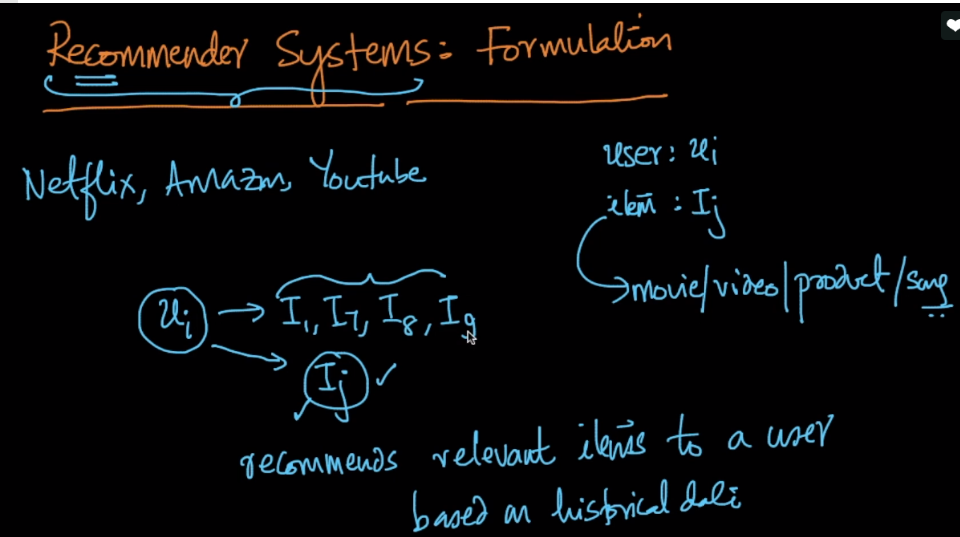 Recommender Systems: Formulation
Netflix, Amazon, Youtube
user: ui
item : Ij
movie/video/product/song
ui → I1, I7, I8, I9
Ij ✓
recommends relevant items to a user
based on historical data